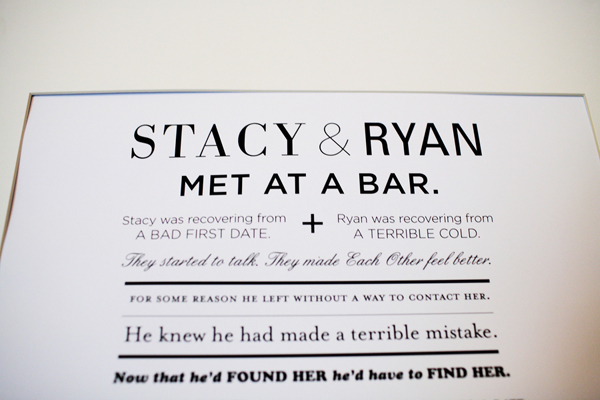 STACY & RYAN
MET AT A BAR.
Stacy was recovering from
A BAD FIRST DATE.
+
Ryan was recovering from
A TERRIBLE COLD.
They started to talk. They made Each Other feel better.
FOR SOME REASON HE LEFT WITHOUT A WAY TO CONTACT HER.
He knew he had made a terrible mistake.
Now that he'd FOUND HER he'd have to FIND HER.